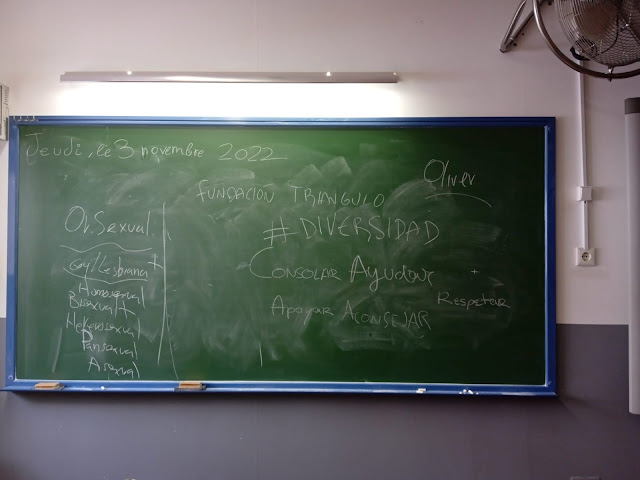 Jeudi, le 3 novembre 2022
Oliver
FUNDACIÓN TRIANGULO
#DIVERSIDAD
CONSOLAR Ayudar
Apoyar ACONSEJAR Respetar
Or. Sexual
Gay/Lesbiana +
Homosexual
Bisexual +
Heterosexual
Pansexual
Asexual